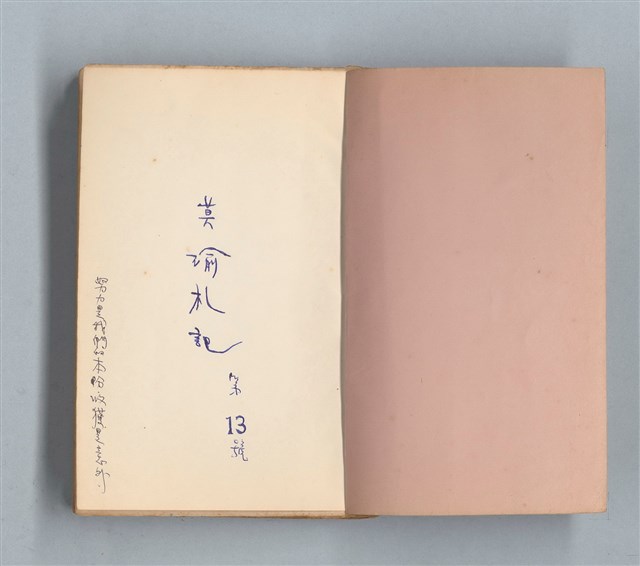 莫瑜札記
第13號
努力是我們的本份收獲是意外.